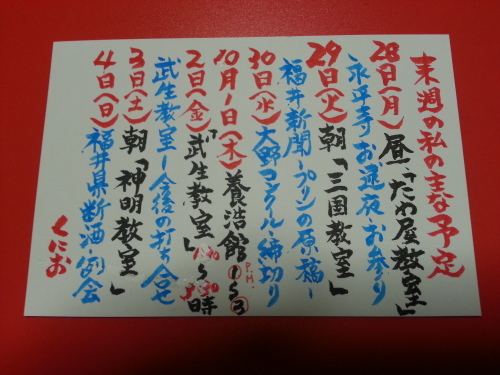 来週の私の主な予定
28日(月)昼「たわ屋教室」
永平寺お逮夜・お参り
29日(火)朝「三国教室」
福井新聞ープリンの原稿ー
30日(水)大野コンクール締切り
10月1日(木)養浩館①〜③P.M.
2日(金)「武生教室」1:30〜3:30時
武生教室ー今後の打ち合せ
3日(土)朝「神明教室」
4日(日)福井県断酒・例会
くにお